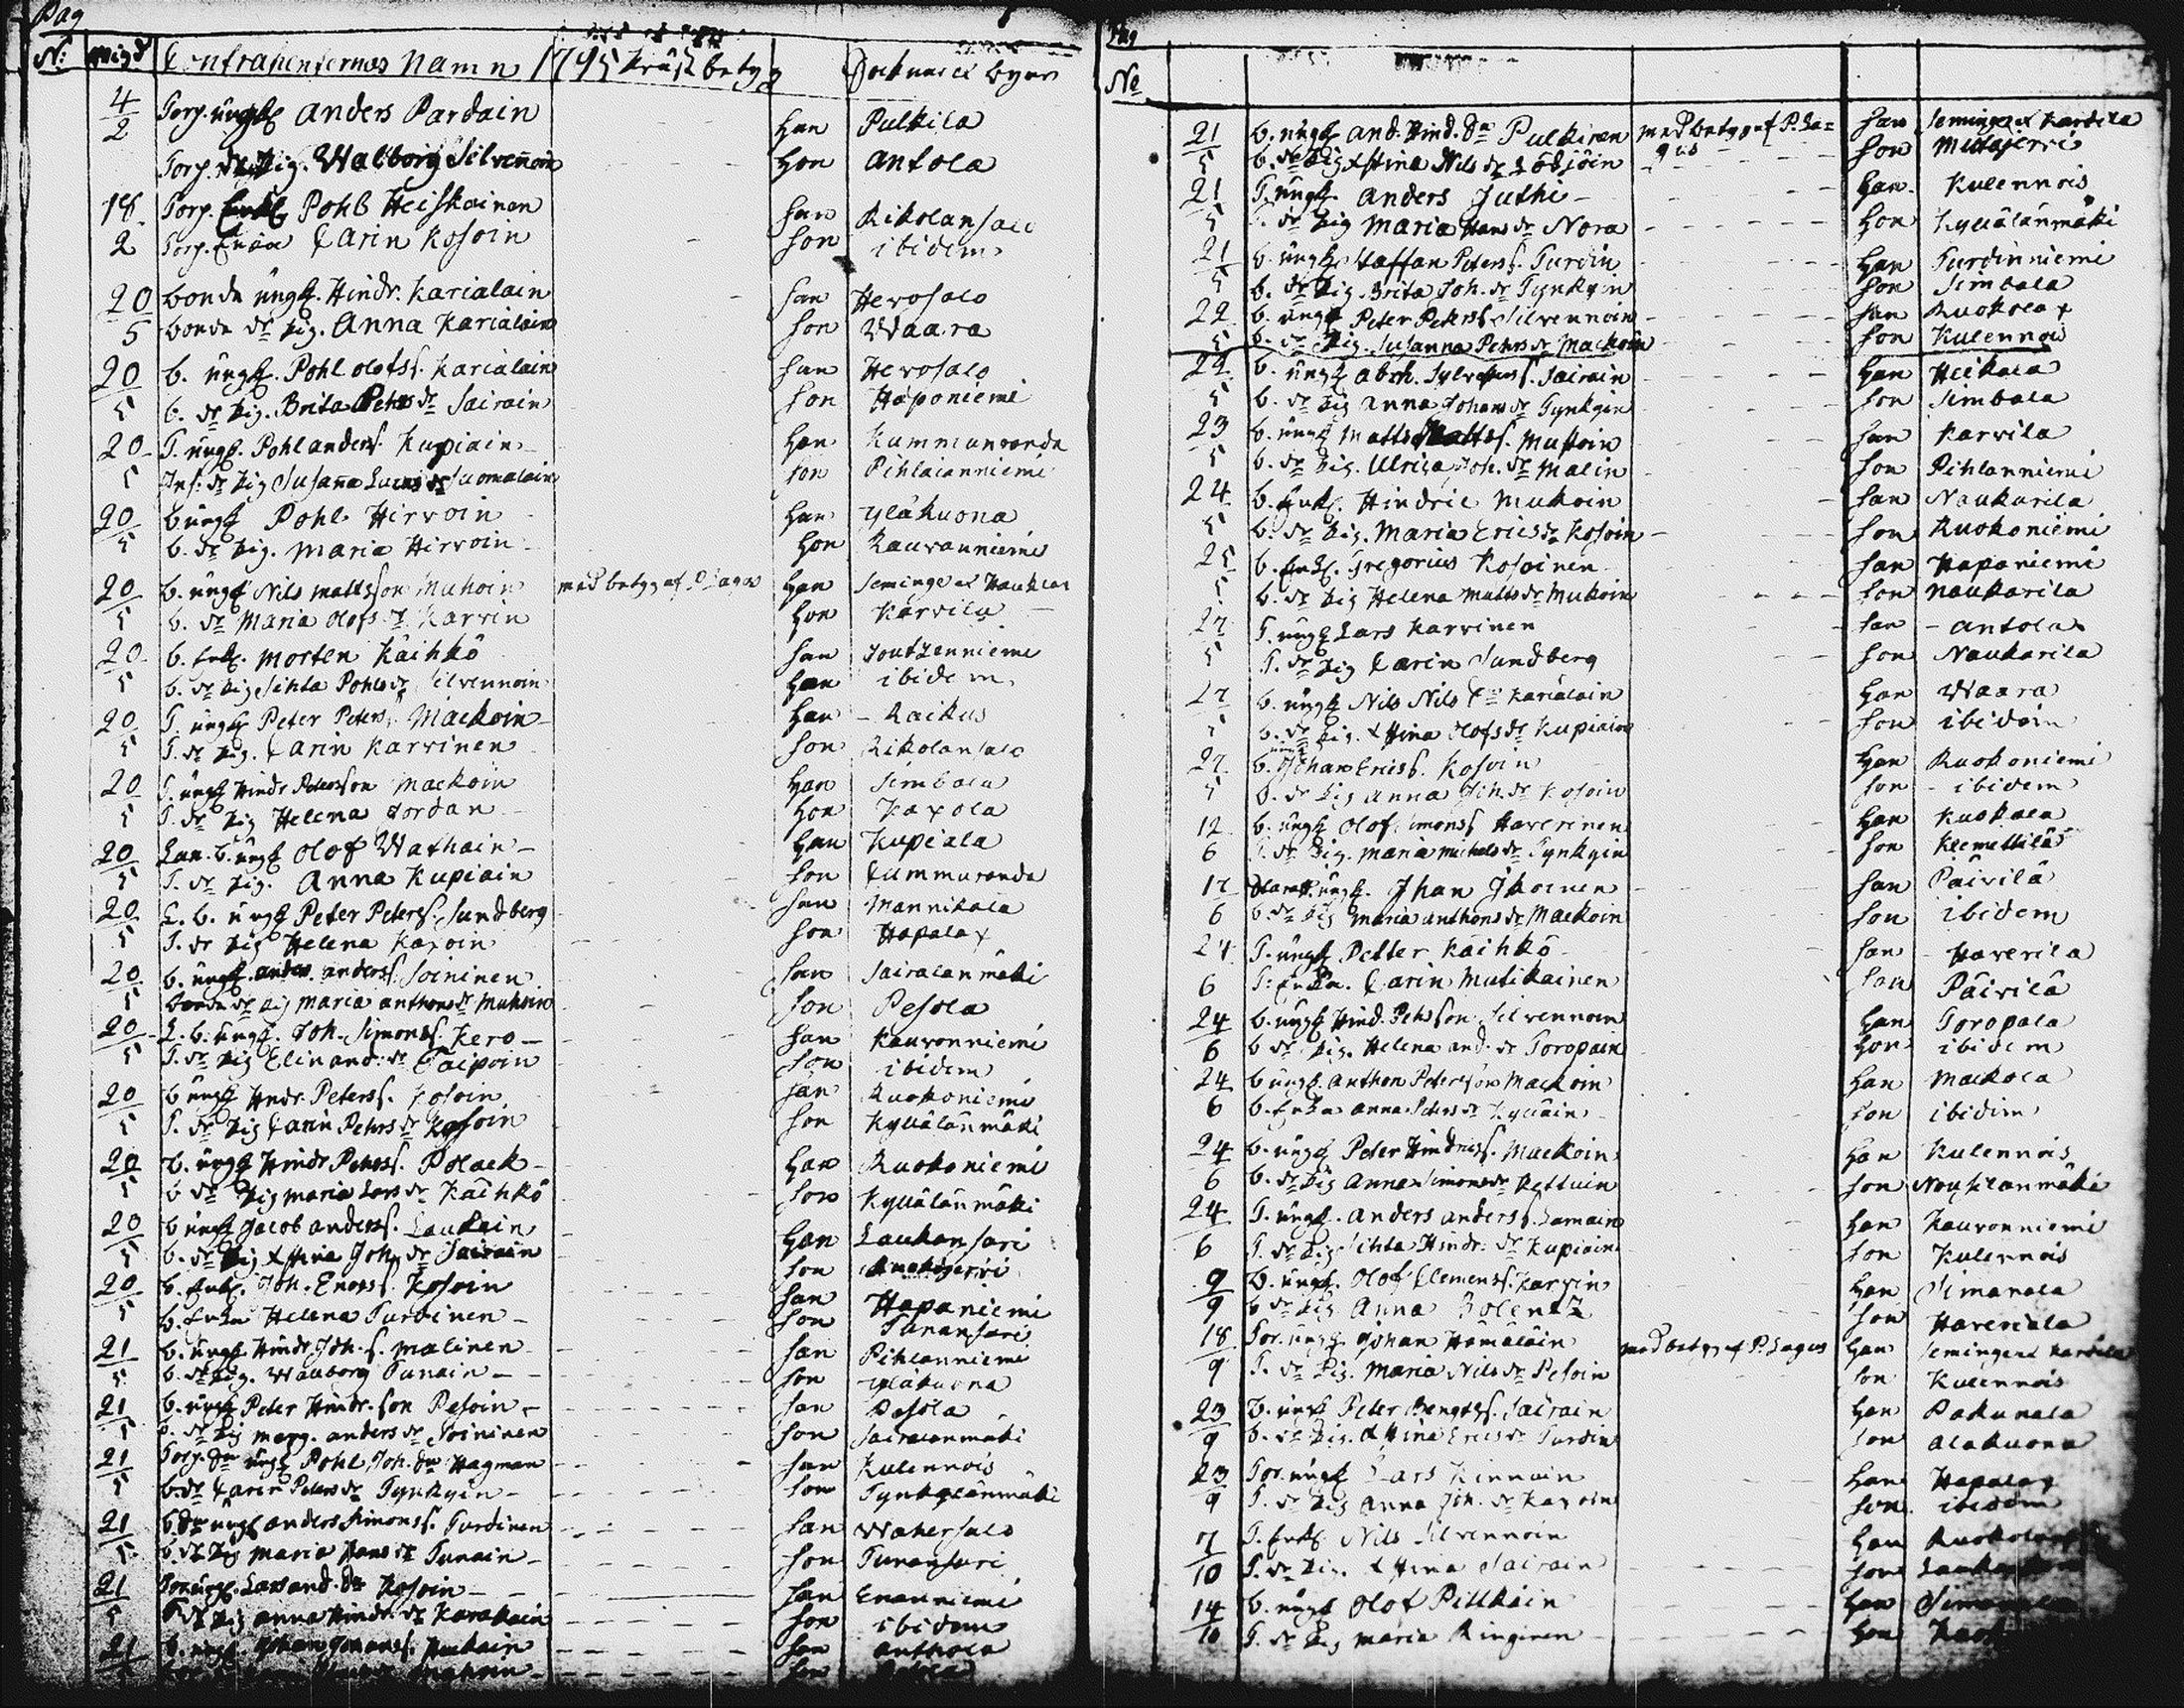 Pag
N: wigd Contrahenternes Namn 1795 betyg Socknar byar
4 Torp. ungk. Anders Pardain han Pulkila
2 Torp. dr pig. Walborg Silvennoin hon Antola
18 Torp. Enkl. Pohl Heiskainen han Rikolansalo
2 Torp. Enka Carin Kosoin hon ibidem
20 bonda ungk. Hindr. Karialain han Herosalo
5 bonda dr pig. Anna Karialain hon Waara
20 b. ungk. Pohl olofss. Karialain han Herosalo
5 b. dr pig. Brita Pehrs dr Sairain hon Haponiemi
20 T. ungk. Pohl anderss. Kupiain han Kummunranda
5 Inh: dr pig Susana Lucas dr Suomalain hon Pihlaianniemi
20 b ungk Pohl Hirvoin han yläkuona
5 b. dr pig. Maria Hirvoin hon Rauvanniemi
20 b. ungk Nils mattsson Muhoin med betyg af P Lagus han Seminge ex
5 b. dr Maria Olofs dr Karvin hon Karvila
20 b. Enkl. Morten Käihkö han Joutzenniemi
5 b. dr pig Sihta Pohls dr Silvennoin hon ibidem
20 T ungk Peter Peterss. Mackoin han Raikus
5 T. dr pig. Carin Karvinen hon Rikolansalo
20 T. ungk Hindr Petersson Mackoin han Simbala
5 T. dr pig Helena Jordan hon Kaxola
20 Lan. b. ungk Olof Wathain han Kupiala
5 T. dr pig. Anna Kupiain hon Cummuranda
20 L. b. ungk Peter Peterss. Sundberg han Mannikala
5 T. dr pig Helena Kaxoin hon Hapala
20 b. ungk. anders anderss. Soininen han Sairalanmäki
5 bonde dr pig maria anthons dr Muhoin hon Pesola
20 L. b. ungk. Joh. Simonss. Kero han Kauvonniemi
5 T. dr pig Elin and: dr Taipoin hon ibidem
20 b ungk Hndr. Peterss. Kosoin han Ruokoniemi
5 T. dr pig Carin Pehrs dr Kosoin hon Kyllälänmäki
20 b. ungk Hindr Pehrss. Polack han Ruokoniemi
5 b dr pig maria Lars dr Käihkö hon Kyllälänmäki
20 b ungk Jacob anderss. Laukain han Laukansari
5 b. dr pig Stina Joh. dr Sairain hon
20 b. Enkl. Joh. Kosoin han Hapaniemi
5 b. Enka Helena Turdinen hon Tunansari
21 b. ungk Hindr. Joh. s. Malinen han Pihlanniemi
5 b. dr pig. Wallborg Tunain hon yläkuona
21 b. ungk Peter Hindr. son Pesoin han Pesola
5 b. dr pig marg. anders dr Soininen hon Sairalanmäki
21 Torp. ungk Pohl Joh. Hagman han Kulennois
5 b dr Carin Peters dr Tynkyin hon Tynkylänmäki
21 ungk anders Simonss. Turdinen han Wahersalo
5 b. dr pig Maria Hans dr Tunain hon Tunansari
21 Tor. ungk. Lars and. Kosoin han Enanniemi
5 T dr pig anna Hindr. dr Karakain hon ibidem
21 b. ungk. Johan han anthola
Pag
No
21 b. ungk and. Hind. Pulkinen med betyg af P. La= han Seminge ex Karvila
5 b. dr pig Stina Nils dr gus hon
21 T. ungk. Anders Juthi han Kulennois
5 T. dr pig Maria Hans dr Nora hon Kyllälänmäki
21 b. ungk Staffan Peterss. Turdin han Turdinniemi
5 b. dr pig. Brita Joh. dr Tynkyin hon Simbala
22 b. ungk Peter Peterss. Silvennoin han Ruokola
5 b. dr pig. Susanna Pehrs dr Mackoin hon Kulennois
22 b. ungk Abrh. Sairain han Heikala
5 b. dr pig Anna Johans dr Tynkyin hon Simbala
23 b. ungk Matts Mattss. Mustoin han Karvila
5 b. dr pig. Ulrica Joh. dr Malin hon Pihlanniemi
24 b. Enkl. Hindric Mukoin han Naukarila
5 b. dr pig. Maria Erics dr Kosoin hon Ruokoniemi
25 b. Enkl. Gregorius Kosoinen han Hapaniemi
5 b. dr pig Helena Matts dr Mukoin hon Naukarila
27 T. ungk Lars Karvinen han Antola
5 T. dr pig Carin Sundberg hon Naukarila
27 b. ungk Nils Nils Karialain han Waara
5 b. dr pig. Stina Olofs dr Kupiain hon ibidem
27 b. ungk Johan Ericss. Kosoin han Ruokoniemi
5 b. dr pig Anna Joh. dr Kosoin hon ibidem
12 b. ungk Olof Simonss Haverinen han Kuokala
6 T. dr pig. Maria Michels dr Tynkyin hon Klemettilä
17 ungk. Johan Ikoinen han Päivilä
6 b. dr pig maria anthons dr Mackoin hon ibidem
24 T. ungk Petter Käihkö han Haverila
6 T: Enka. Carin Mutikainen hon Päivilä
24 b. ungk Hind. Pehrsson Silvennoin han Toropala
6 b dr pig. Helena and. dr Toropain hon ibidem
24 b ungk. Anthon Petersson Mackoin han Mackola
6 b. Enka Anna Peters dr Kylläin hon ibidim
24 b. ungk Peter Hindricss. Mackoin han Kulennois
6 b. dr pig Anna Simons dr Kettuin hon
24 T. ungk. Anders anderss. Lamain han Kauvonniemi
6 T. dr pig Sihta Hindr. dr Kupiain hon Kulennois
9 b. ungk. Olof Clemenss. Karvin han Simanala
9 b dr pig Anna Bolentz hon Haveriala
18 Tor. ungk. Johan Hämäläin med betyg af P. Lagus han Seminge ex Karvila
9 T. dr Pig. Maria Nils dr Pesoin hon Kulennois
23 b. ungk Peter Bengtss. Sairain han Pakunala
9 b. dr pig. Stina Erics dr Turdin hon alakuona
23 Tor. ungk Lars Kinnuin han Hapala
9 T. dr pig Anna Joh. dr Kaxoin hon ibidem
7 T. Enkl. Nils Silvennoin han
10 T. dr pig. Stina Sairain hon
14 b. ungk Olof Pillkäin han
10 T. dr pig Maria Ringinen hon